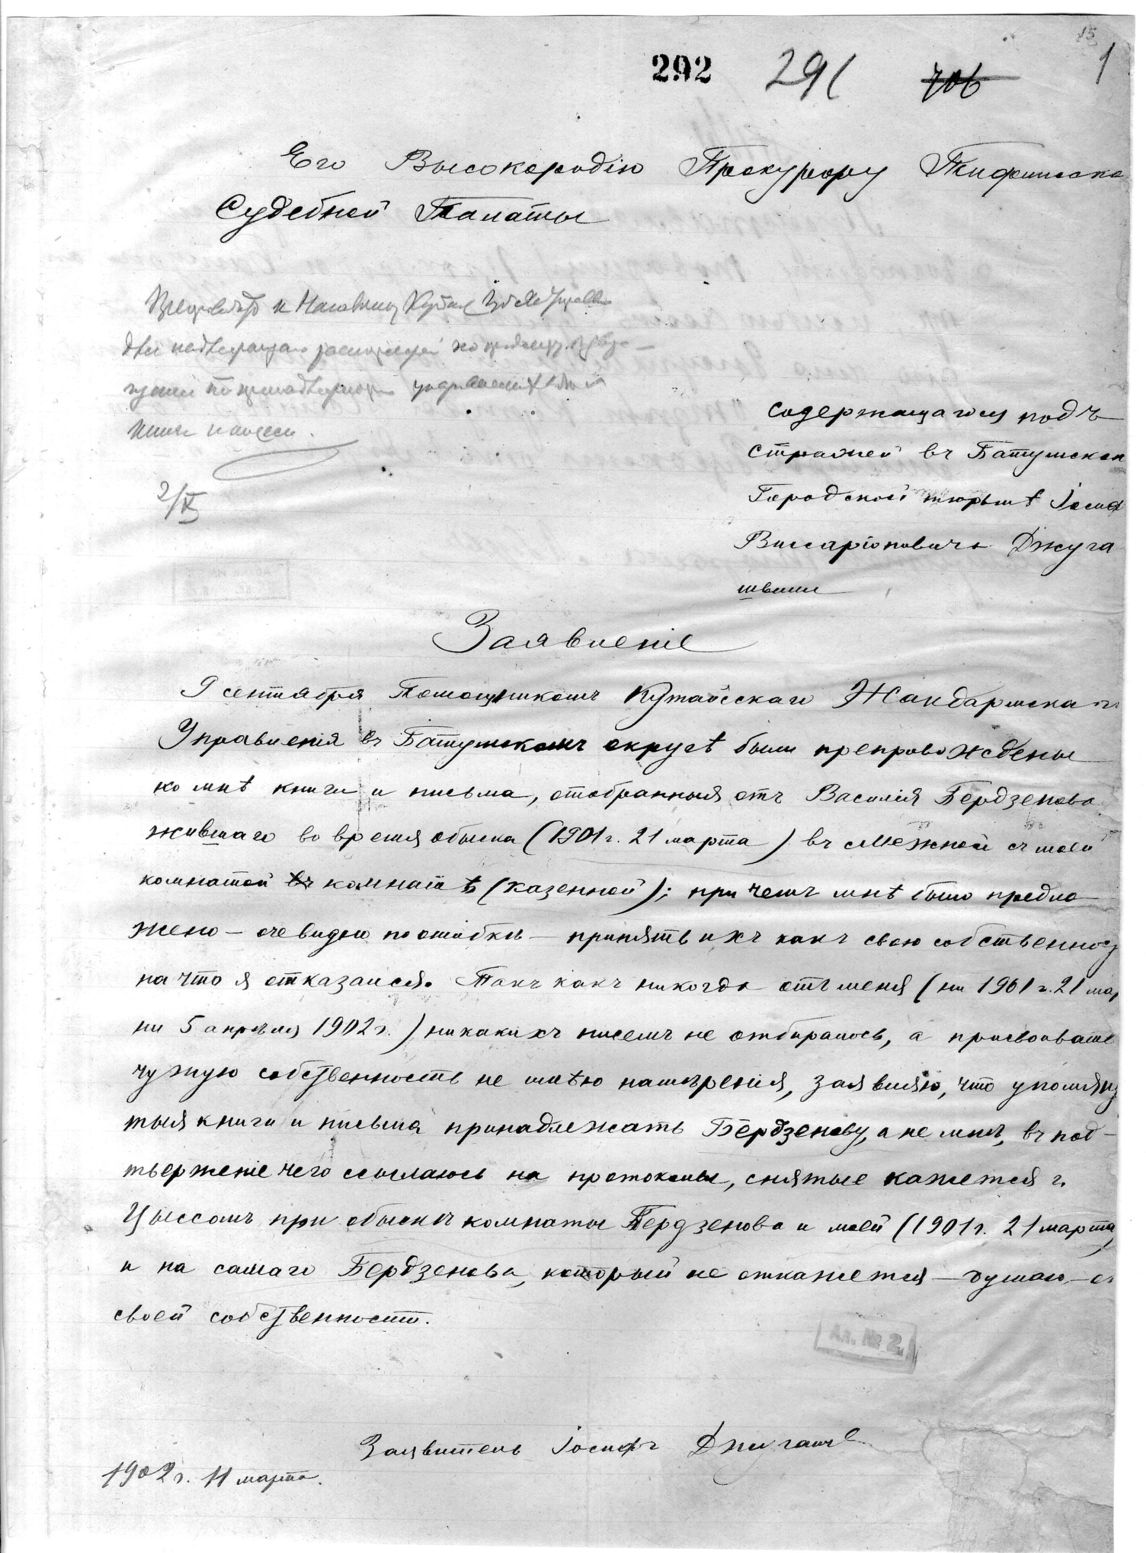 15
292 291 706 1
Его Высокородію Прокурору Тифлисско
Судебной Палаты
содержащагося подъ
стражей въ Батумской
Городской тюрьмѣ Іосиф
Виссаріоновича Джуга
швили
Заявленіе
9 сентября Помощникомъ Кутайсскаго Жандармскаго
Управленія въ Батумскомъ округѣ были препровождены
ко мнѣ книги и письма, отобранныя отъ Василія Бердзенова
жившаго во время обыска (1901 г. 21 марта) въ смежной съ моей
комнатой въ комнатѣ (казенной); при чемъ мнѣ было предло
жено – очевидно по ошибкѣ – принять ихъ какъ свою собственност
на что я отказался. Такъ какъ никогда отъ меня (ни 1901 г. 21 мар
ни 5 апрѣля 1902 г.) никакихъ писемъ не отбиралось, а присвоивать
чужую собственность не имѣю намѣренія, заявляю, что упомяну
тыя книги и письма принадлежатъ Бердзенову, а не мнѣ, въ под–
твержденіе чего ссылаюсь на протоколы, снятые кажется г.
Цыссомъ при обыскѣ комнаты Бердзенова и моей (1901 г. 21 марта)
и на самаго Бердзенова, который не откажется – думаю – от
своей собственности.
Ал. № 2
Заявитель Іосифъ Джугашв
1902 г. 11 марта.
2/X